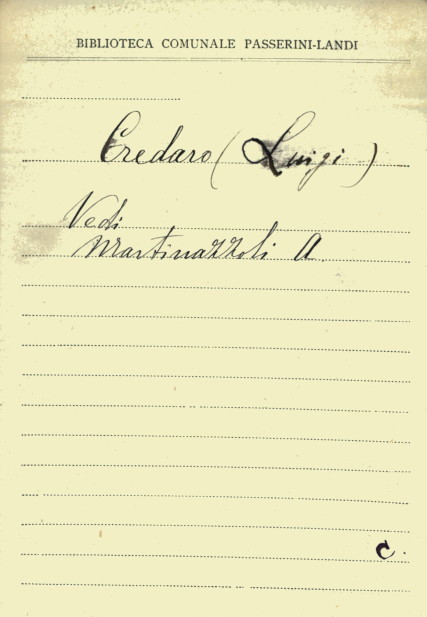 BIBLIOTECA COMUNALE PASSERINI-LANDI
Credaro (Luigi)
Vedi
Martinazzoli A.
C.